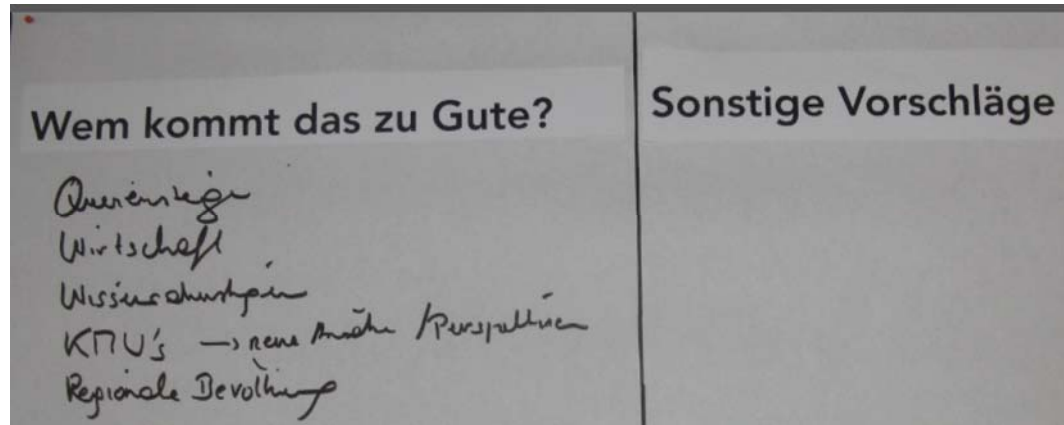 Wem kommt das zu Gute?
Quereinsteiger
Wirtschaft
KMU's → neue Ansätze / Perspektiven
Regionale Bevölkerung
Sonstige Vorschläge